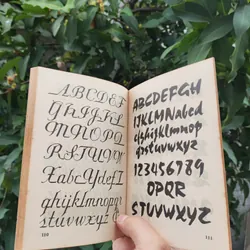 ABCDEF
GHIJKL
MNOPQ
RSTUV
XabcYdefZ
ghijklmno
stuvwxyz
ABCDEFGH
IJKLMNabcd
efghijkmnop
qrstuvwxyz
123456789
OPQR
STUVWXYZ